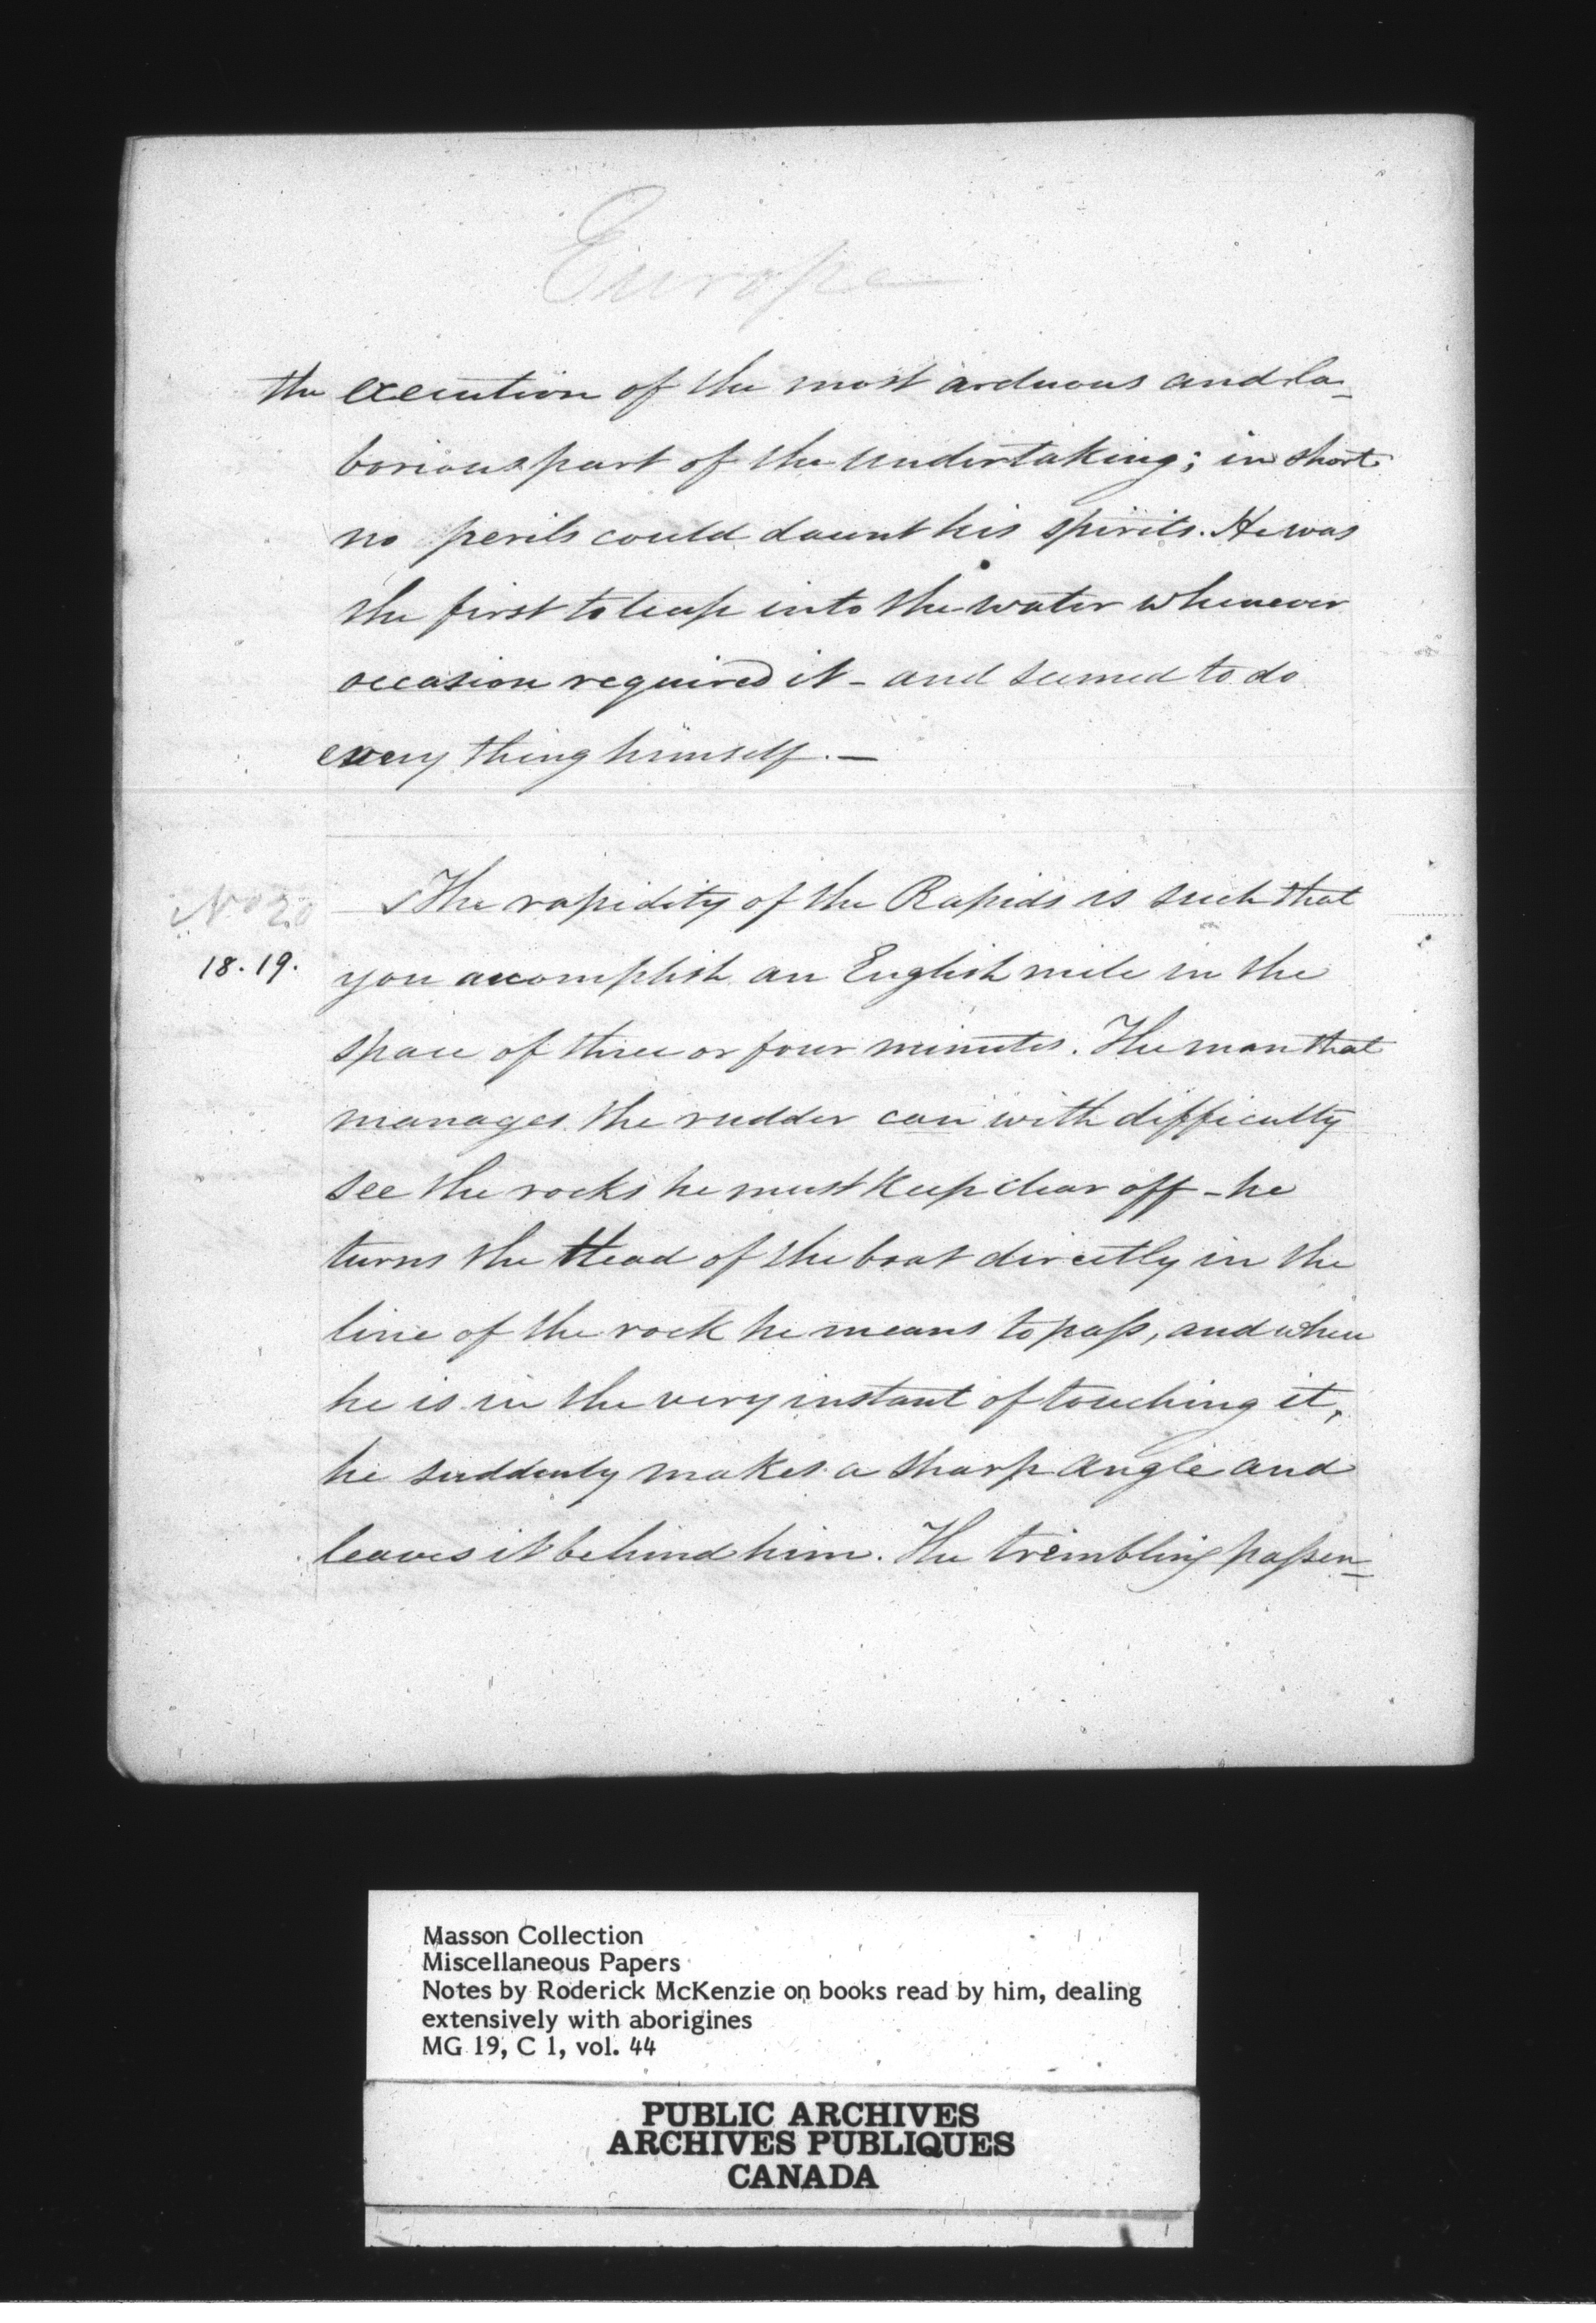 Europe
the execution of the most arduous and la-
borious part of the undertaking; in short
no perils could daunt his spirits. He was
the first to leap into the water whenever
occasion required it - and seemed to do
every thing himself. -
No 20
The rapidity of the Rapids is such that
18. 19.
you accomplish an English mile in the
space of three or four minutes. The man that
manages the rudder can with difficulty
see the rocks he must keep clear off - he
turns the Head of the boat directly in the
line of the rock he means to pass, and when
he is in the very instant of touching it,
he suddenly makes a sharp angle and
leaves it behind him. The trembling passen-
Masson Collection
Miscellaneous Papers
Notes by Roderick McKenzie on books read by him, dealing
extensively with aborigines
MG 19, C 1, vol. 44
PUBLIC ARCHIVES
ARCHIVES PUBLIQUES
CANADA